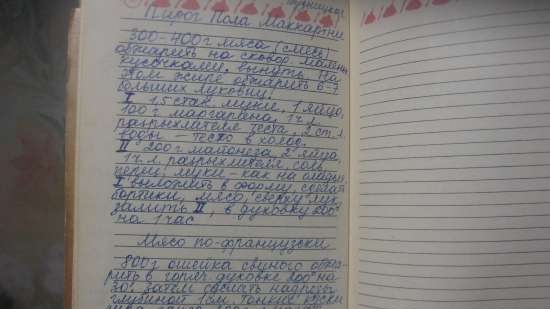 Кузнецкая
Пирог Пола Маккартни
300-400 г мяса (смесь)
обжарить на сковор. малень
кусочками, вынуть. На
этом жире обжарить 6-7
больших луковиц!
I 1,5 стак. муки, 1 яйцо,
100 г маргарина, 1 ч.л.
разрыхлителя теста, 2 ст. л
воды – тесто в холод.
II 200 г майонеза, 2 яйца,
1 ч. л. разрыхлителя, соль
перец, муки – как на оладьи
I выложить в форму, сделать
бортики, мясо, сверху лук
залить II, в духовку 200°
на 1 час
Мясо по-французски
800 г ошейка свиного обжа-
рить в горяч. духовке 200° на
30'. Затем сделать надрезы
глубиной 1 см. Тонкие куски